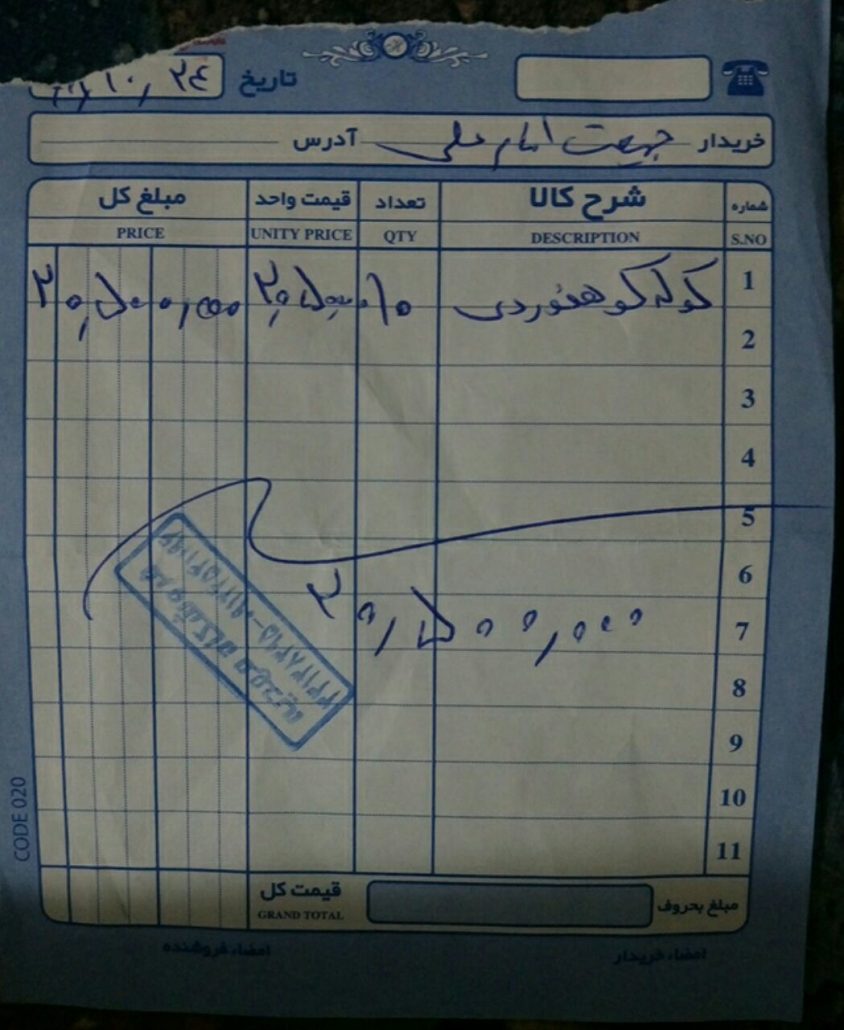 تاریخ ۱۰/۲۴
خریدار جمعیت امام علی آدرس
شماره شرح کالا تعداد قیمت واحد مبلغ کل
S.NO DESCRIPTION QTY UNITY PRICE PRICE
1 کوله کوهنوردی ۱۰ ۲,۰۵۰,۰۰۰ ۲۰,۵۰۰,۰۰۰
2
3
4
5
6
۲۰,۵۰۰,۰۰۰
7
8
9
10
11
مبلغ بحروف قیمت کل
GRAND TOTAL
امضاء خریدار امضاء فروشنده
CODE 020